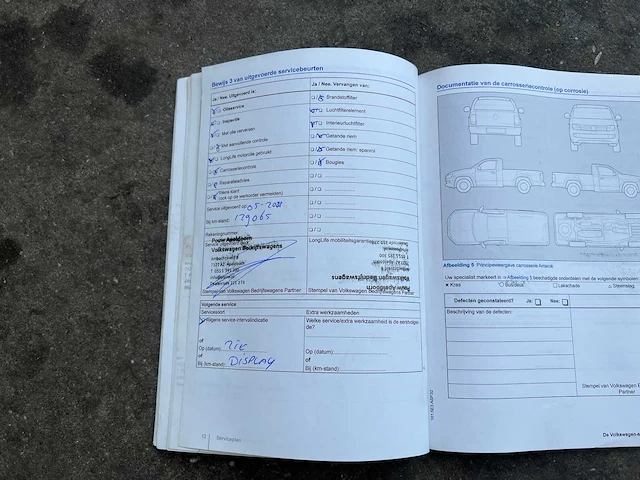 Bewijs 3 van uitgevoerde servicebeurten
Ja / Nee. Uitgevoerd is:
Olieservice
Inspectie
Met olie verversen
Met aanvullende controle
LongLife motorolie gebruikt
Carrosseriecontrole
Reparatieadvies
Wens klant
(ook op de werkorder vermelden)
Service uitgevoerd op
Bij km-stand: 129065
Rekeningnummer
Service uitgevoerd door
Pouw Apeldoorn
Volkswagen Bedrijfswagens
Stempel van Volkswagen Bedrijfswagens Partner
Ja / Nee. Vervangen van:
Brandstoffilter
Luchtfilterelement
Interieurluchtfilter
Getande riem
Getande riem: spanrol
Bougies
LongLife mobiliteitsgarantie
Volkswagen Bedrijfswagens
Pouw Apeldoorn
Stempel van Volkswagen Bedrijfswagens Partner
Volgende service
Servicesoort
Volgens service-intervalindicatie
of
Op (datum): ZIE
of
Bij (km-stand): DISPLAY
Extra werkzaamheden
Welke service/extra werkzaamheid is de eerstvolgen-
de?
Op (datum)
of
Bij (km-stand)
12
Serviceplan
Documentatie van de carrosseriecontrole (op corrosie)
Afbeelding 5 Principeweergave carrosserie Amarok
Uw specialist markeert in → Afbeelding 5 beschadigde onderdelen met de volgende symbolen
Kras
Buts/deuk
Lakschade
Steenslag
Defecten geconstateerd?
Ja:
Nee:
Beschrijving van de defecten:
Stempel van Volkswagen
Partner
De Volkswagen-